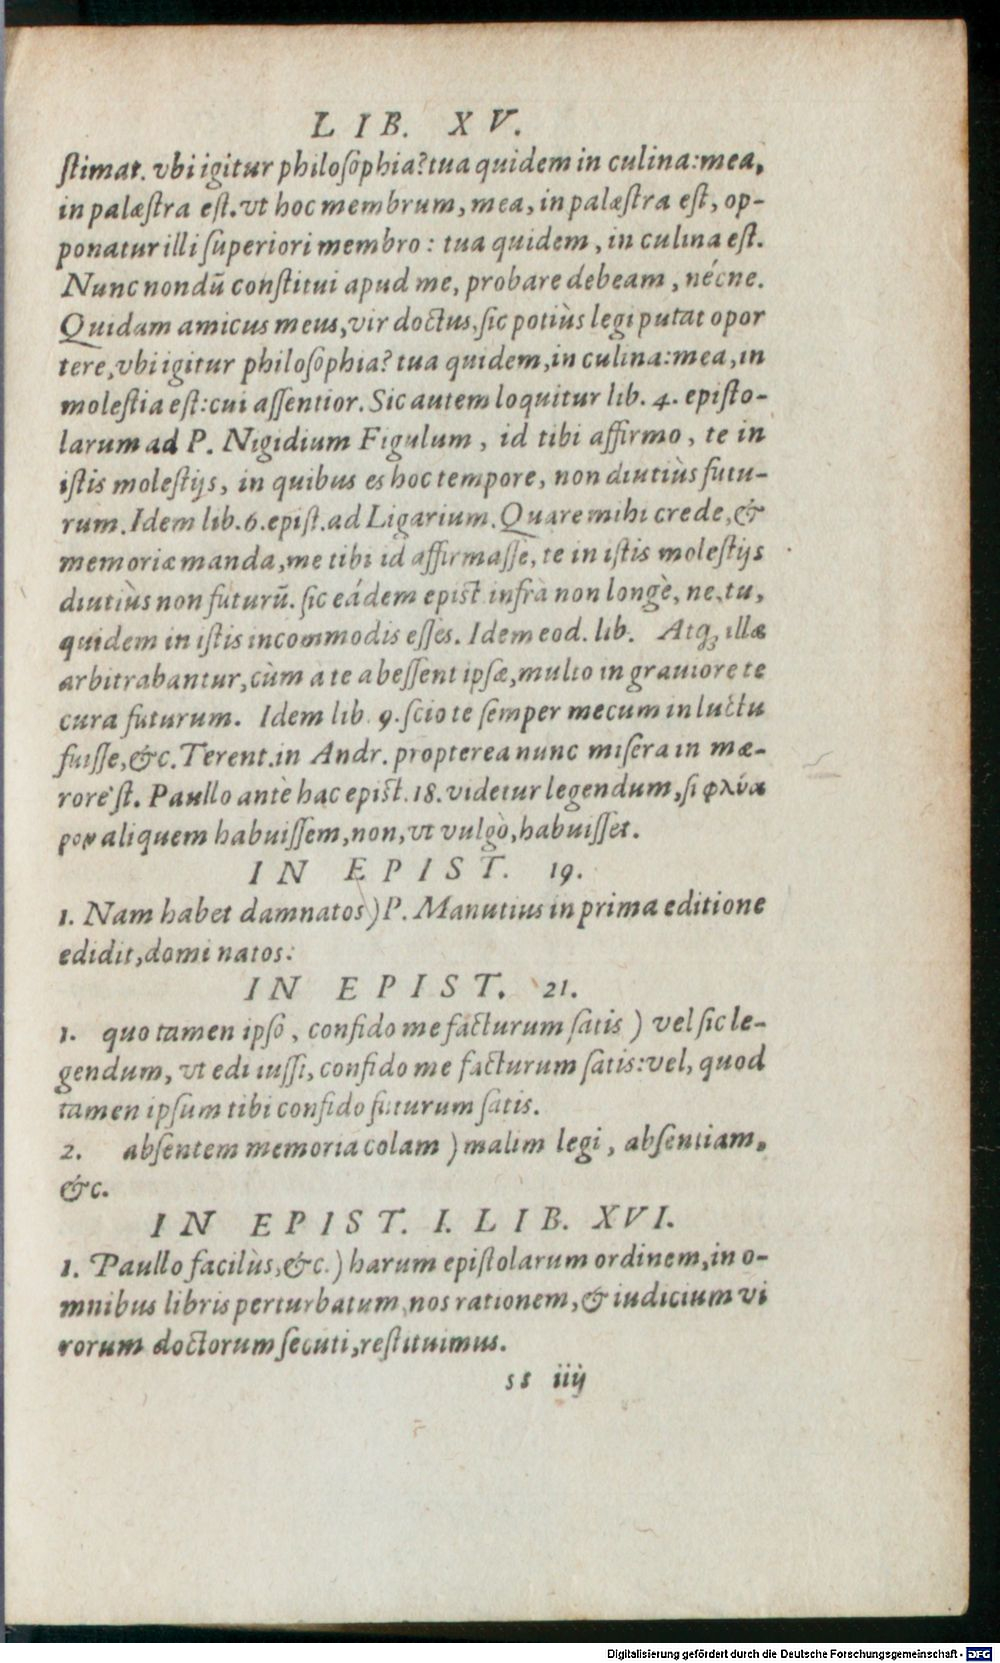 LIB. XV.
stimat. vbi igitur philosophia? tua quidem in culina: mea,
in palæstra est. vt hoc membrum, mea, in palæstra est, op-
ponatur illi superiori membro: tua quidem, in culina est.
Nunc nondū constitui apud me, probare debeam, nécne.
Quidam amicus meus, vir doctus, sic potiùs legi putat opor
tere, vbi igitur philosophia? tua quidem, in culina: mea, in
molestia est: cui assentior. Sic autem loquitur lib. 4. episto-
larum ad P. Nigidium Figulum, id tibi affirmo, te in
istis molestijs, in quibus es hoc tempore, non diutiùs futu-
rum. Idem lib. 6. epist. ad Ligarium. Quare mihi crede, &
memoriæ manda, me tibi id affirmasse, te in istis molestijs
diutiùs non futurū. sic eádem epist. infrà non longè, ne, tu,
quidem in istis incommodis esses. Idem eod. lib. Atq; illæ
arbitrabantur, cùm a te abessent ipsæ, multo in grauiore te
cura futurum. Idem lib. 9. scio te semper mecum in luctu
fuisse, &c. Terent. in Andr. propterea nunc misera in mæ-
rore'st. Paullo antè hac epist. 18. videtur legendum, si φλύα
ρον aliquem habuissem, non, vt vulgò, habuisset.
IN EPIST. 19.
1. Nam habet damnatos) P. Manutius in prima editione
edidit, domi natos:
IN EPIST. 21.
1. quo tamen ipso, confido me facturum satis) vel sic le-
gendum, vt edi iussi, confido me facturum satis: vel, quod
tamen ipsum tibi confido futurum satis.
2. absentem memoria colam) malim legi, absentiam,
&c.
IN EPIST. I. LIB. XVI.
1. Paullo facilùs, &c.) harum epistolarum ordinem, in o-
mnibus libris perturbatum, nos rationem, & iudicium vi
rorum doctorum secuti, restituimus.
ss iiij
Digitalisierung gefördert durch die Deutsche Forschungsgemeinschaft - DFG